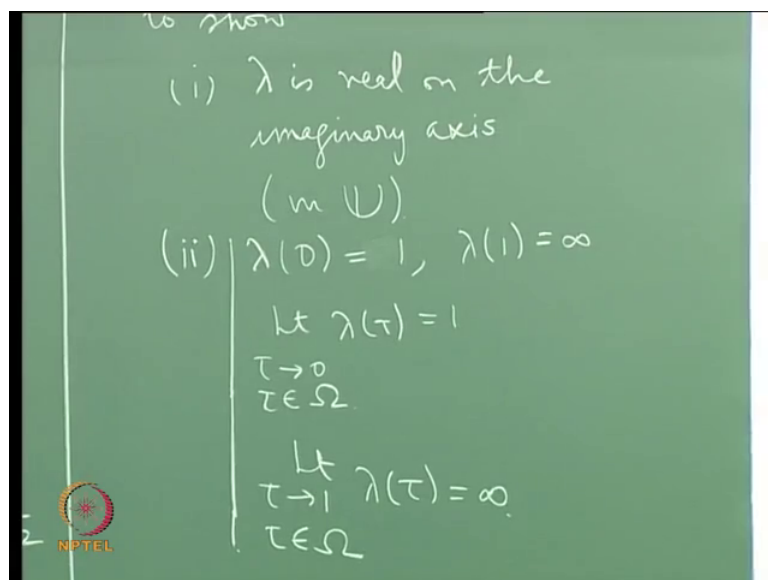 to show
(i) λ is real on the
imaginary axis
(in U).
(ii) λ(0) = 1, λ(1) = ∞
Lt λ(τ) = 1
τ → 0
τ ∈ Ω
Lt
τ → 1 λ(τ) = ∞.
τ ∈ Ω
Ω
NPTEL